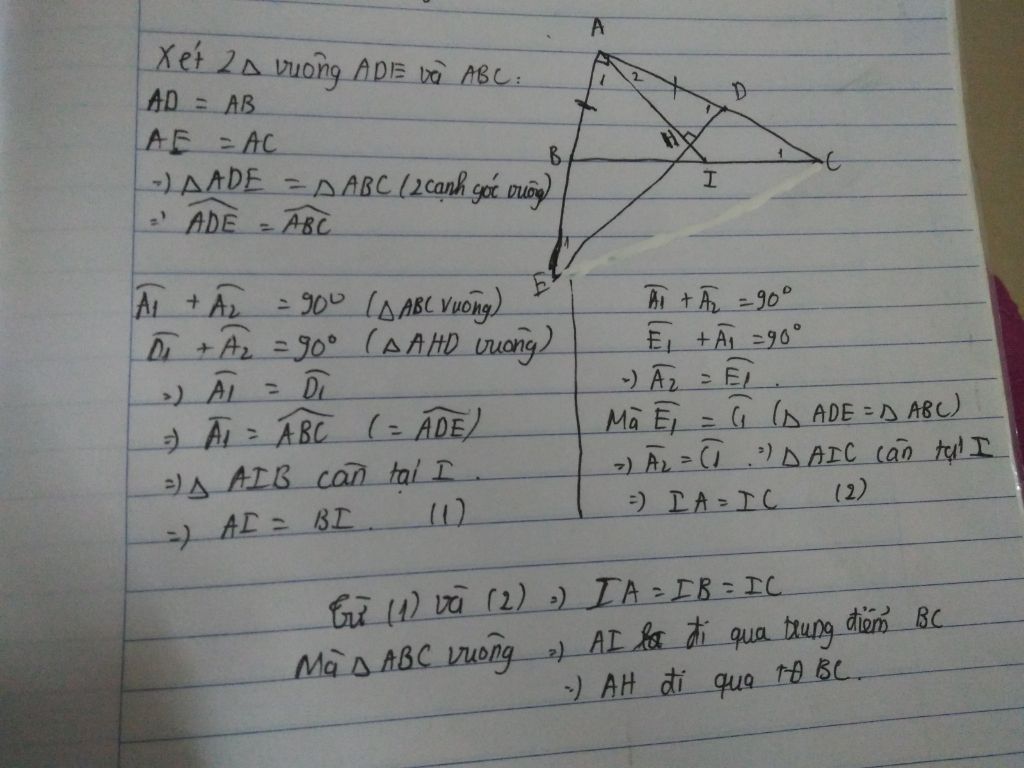 Xét 2Δ vuông ADE và ABC:
AD = AB
AE = AC
=) ΔADE = ΔABC (2 cạnh góc vuông)
=) ADE = ABC
A
1
2
D
1
H
B
I
1
C
1
E
A1 + A2 = 90° (ΔABC vuông)
D1 + A2 = 90° (ΔAHD vuông)
=) A1 = D1
=) A1 = ABC (= ADE)
=) Δ AIB cân tại I.
=) AI = BI. (1)
A1 + A2 = 90°
E1 + A1 = 90°
=) A2 = E1.
Mà E1 = C1 (Δ ADE = Δ ABC)
=) A2 = C1. =) Δ AIC cân tại I
=) IA = IC (2)
Từ (1) và (2) =) IA = IB = IC
Mà Δ ABC vuông =) AI đi qua trung điểm BC
=) AH đi qua TĐ BC.